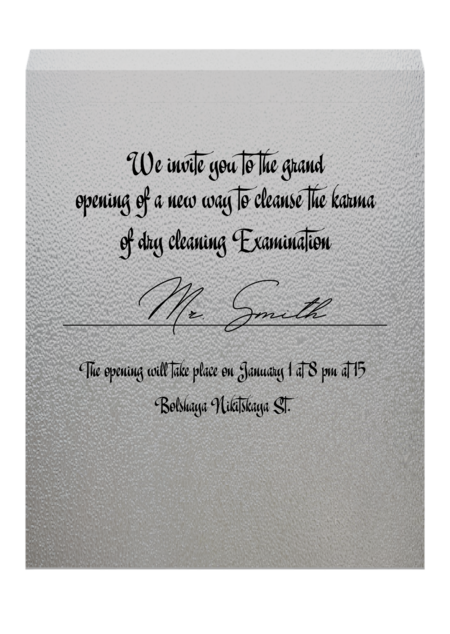 We invite you to the grand
opening of a new way to cleanse the karma
of dry cleaning Examination
Mr. Smith
The opening will take place on January 1 at 8 pm at 15
Bolshaya Nikitskaya St.